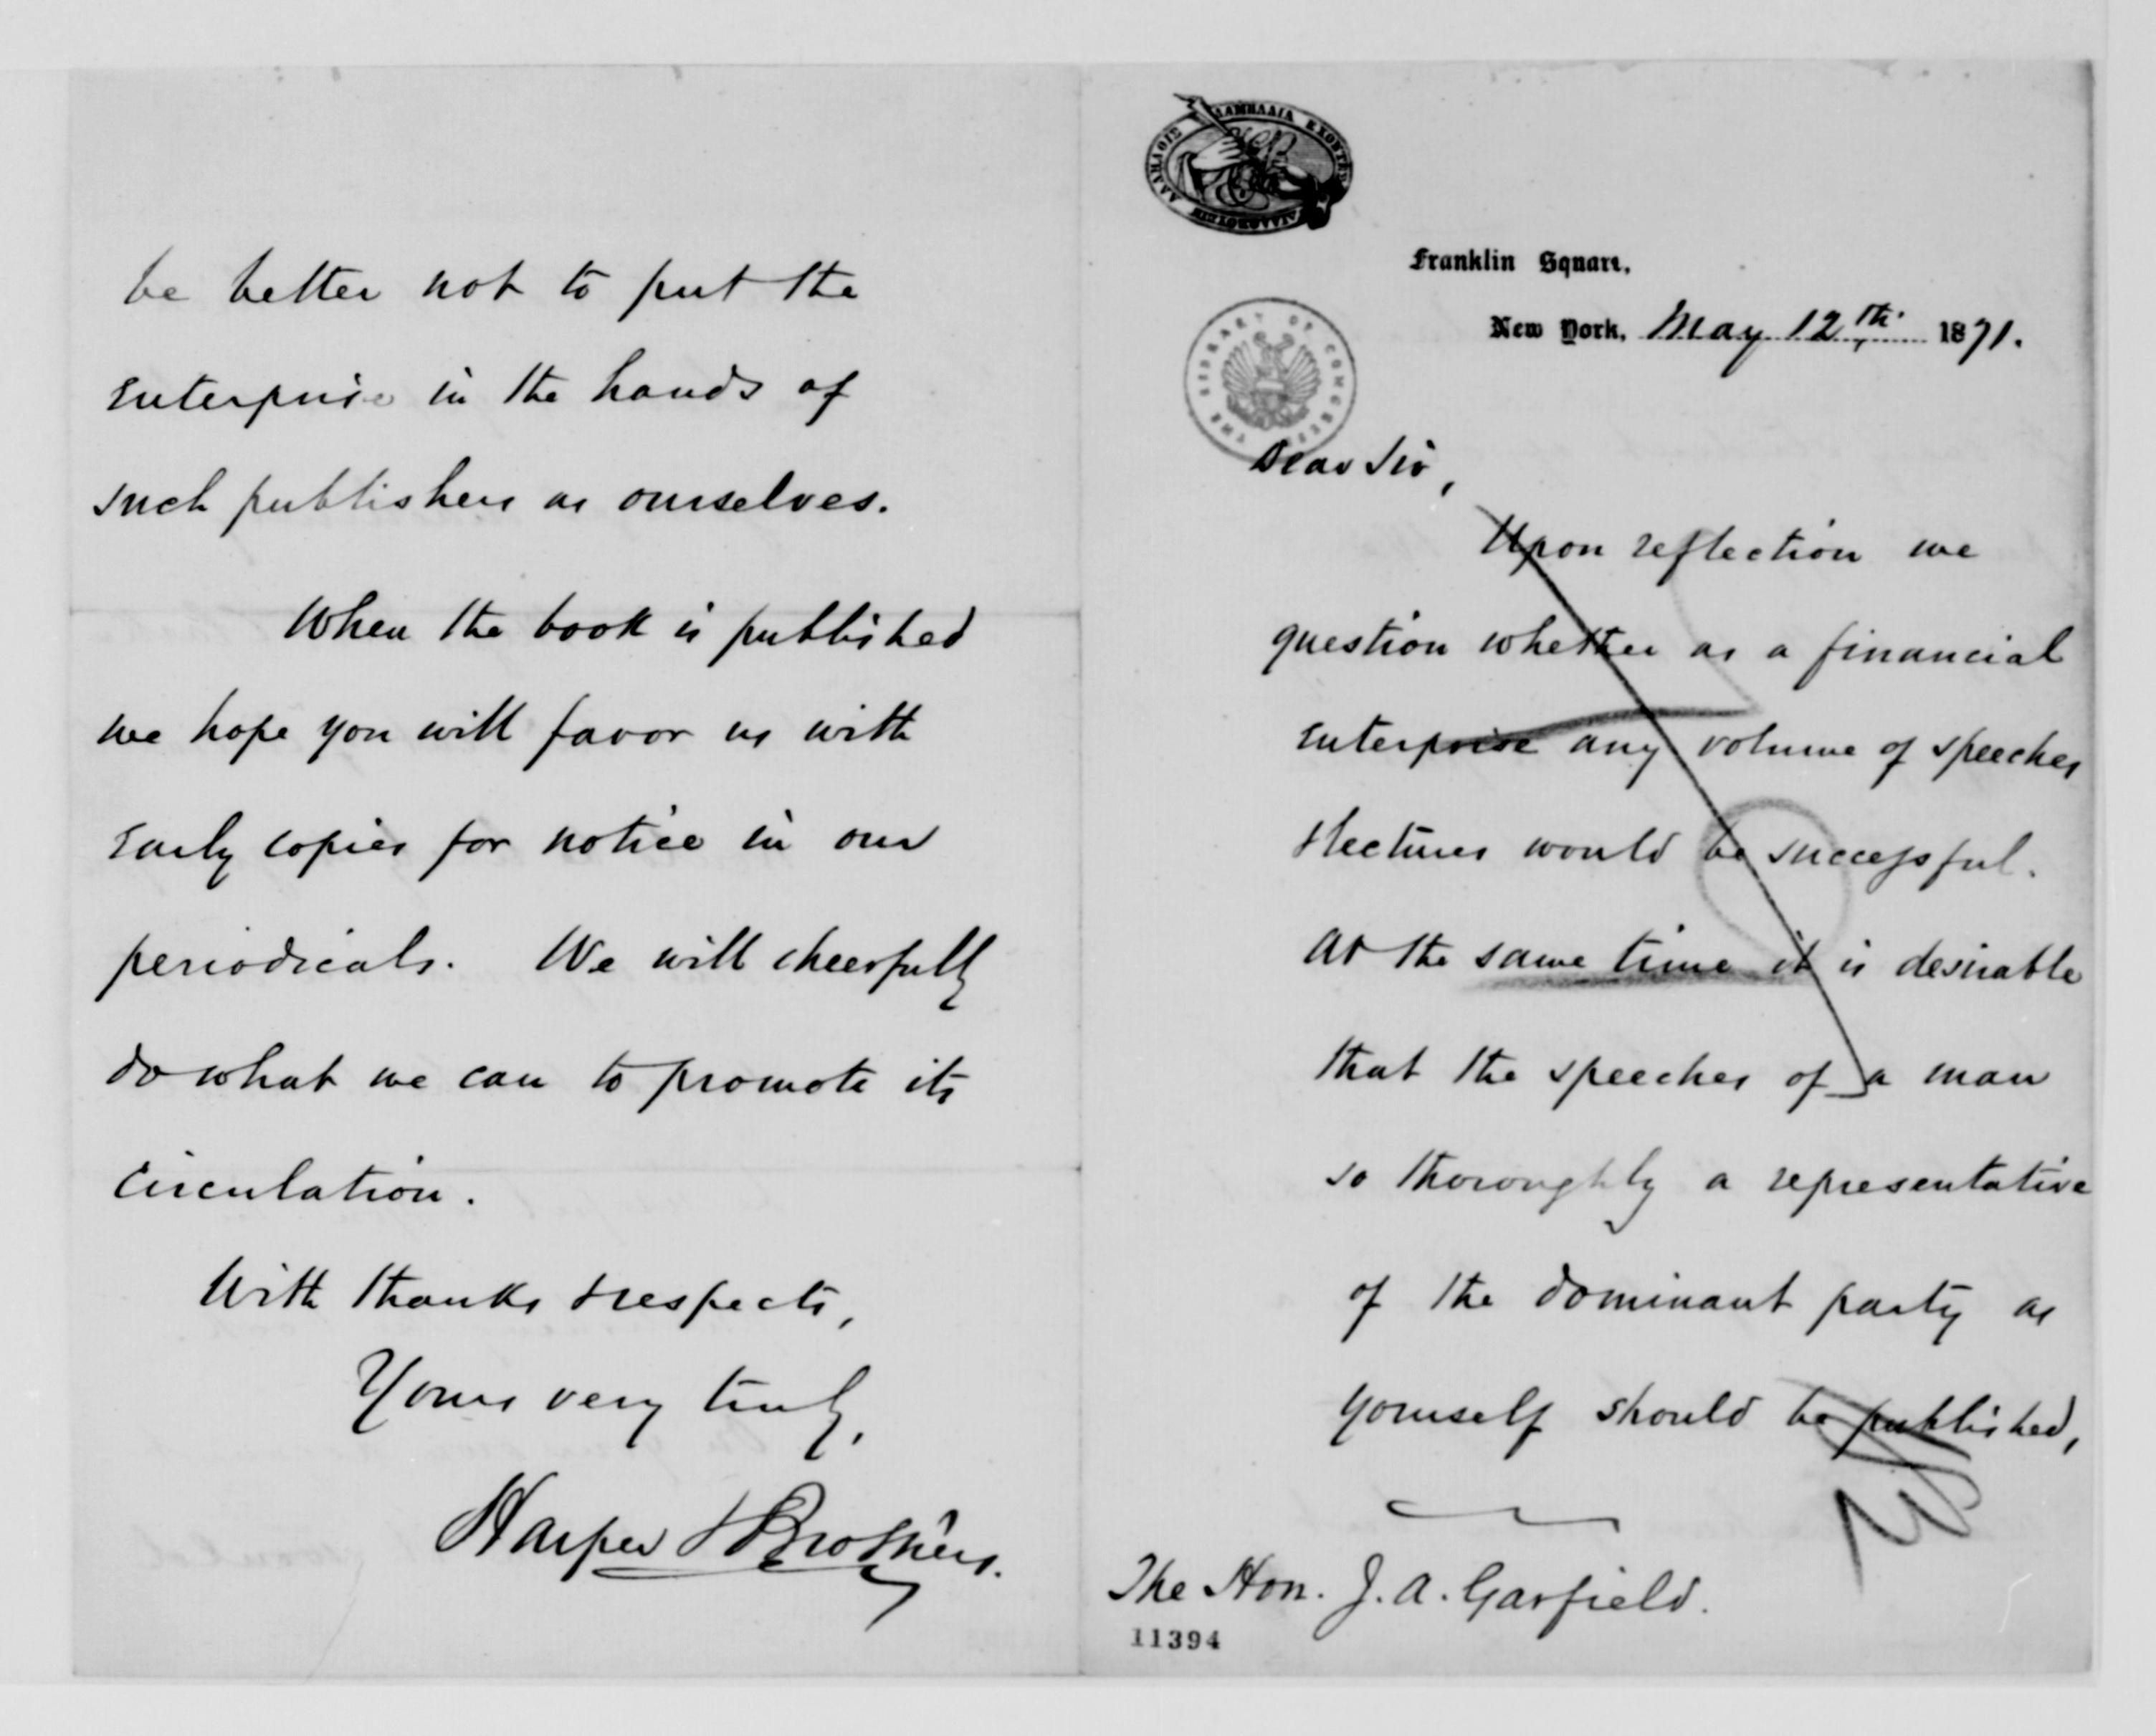 ΛΑΜΠΑΔΙΑ ΕΧΟΝΤΕΣ ΔΙΑΔΩΣΟΥΣΙΝ ΑΛΛΗΛΟΙΣ
Franklin Square,
New York, May 12th. 1871.
THE LIBRARY OF CONGRESS
Dear Sir,
Upon reflection we
question whether as a financial
enterprise any volume of speeches
& lectures would be successful.
At the same time it is desirable
that the speeches of a man
so thoroughly a representative
of the dominant party as
yourself should be published,
The Hon. J. A. Garfield.
11394
be better not to put the
enterprise in the hands of
such publishers as ourselves.
When the book is published
we hope you will favor us with
early copies for notice in our
periodicals. We will cheerfully
do what we can to promote its
circulation.
With thanks & respects,
Yours very truly,
Harper & Brothers.